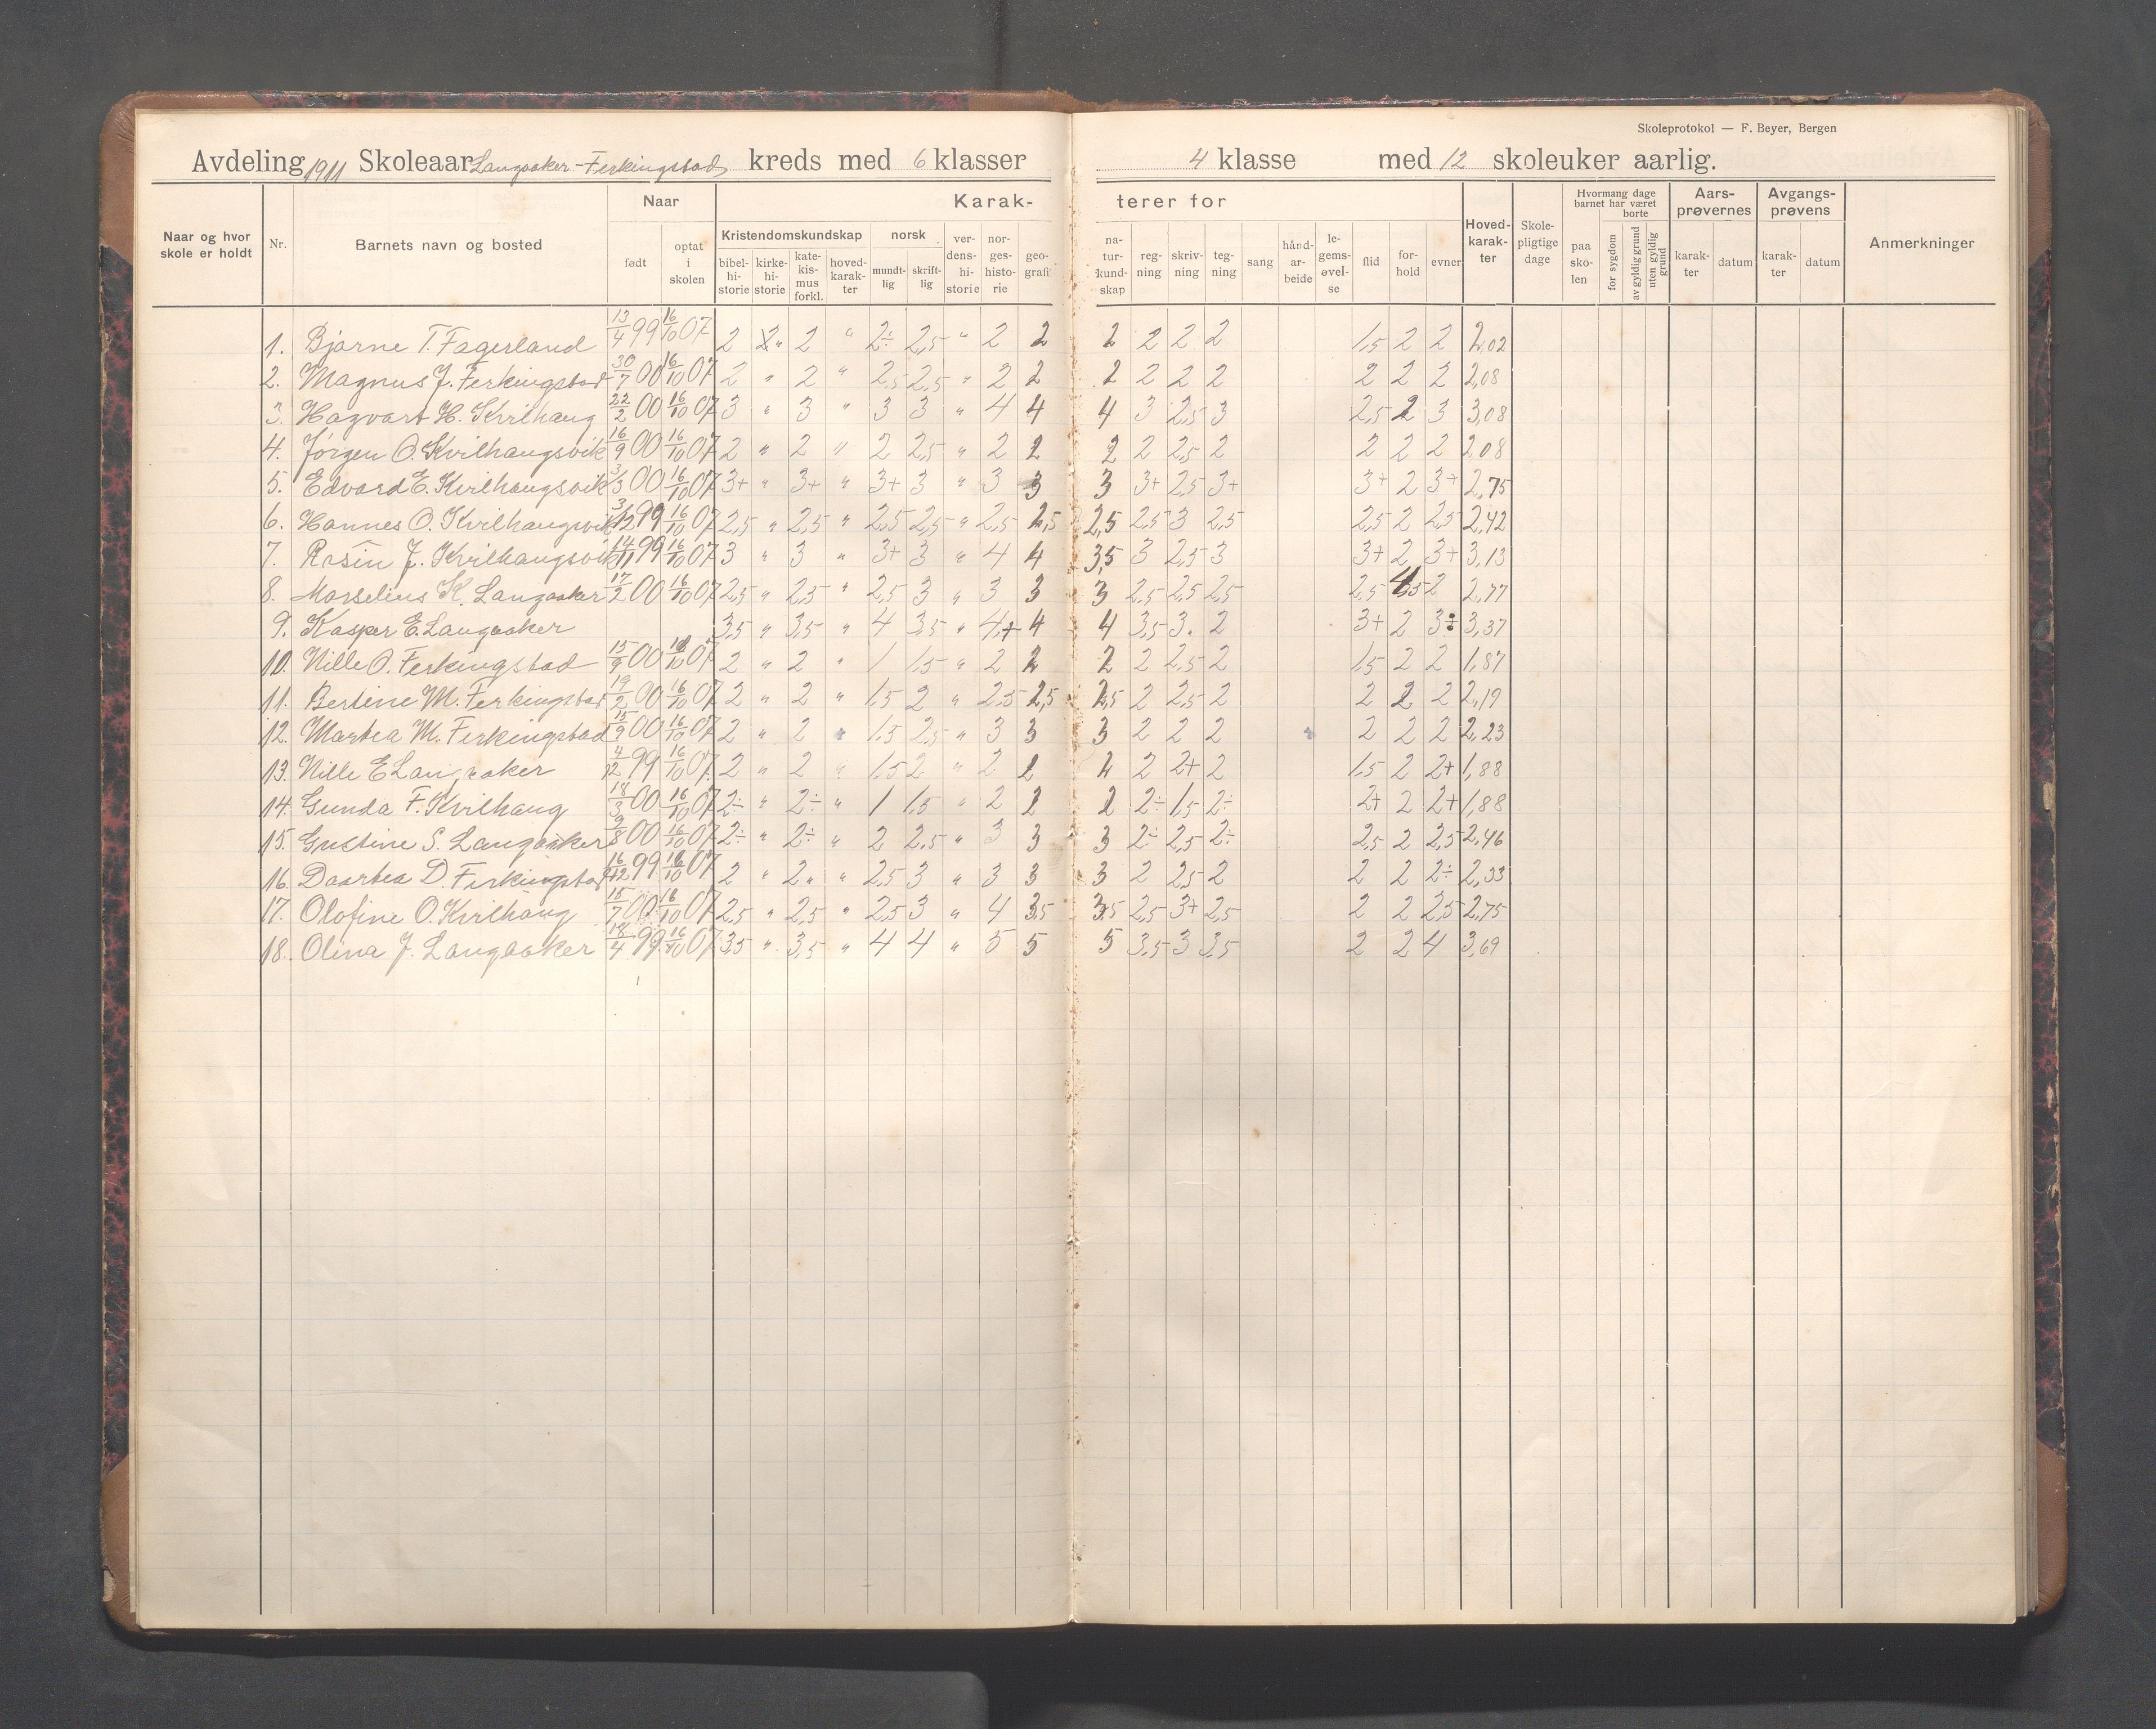 Skoleprotokol — F. Beyer, Bergen
Avdeling 1911 Skoleaar Langaaker-Ferkingstad kreds med 6 klasser 4 klasse med 12 skoleuker aarlig.
Naar og hvor skole er holdt Nr. Barnets navn og bosted Naar født optat i skolen Karakterer for Kristendomskundskap bibelhistorie kirkehistorie katekismus forkl. hovedkarakter norsk mundtlig skriftlig verdenshistorie norgeshistorie geografi naturkundskap regning skrivning tegning sang håndarbeide legemsøvelse flid forhold evner Hovedkarakter Skolepligtige dage Hvormang dage barnet har været borte paa skolen for sygdom av gyldig grund uten gyldig grund Aarsprøvernes karakter datum Avgangsprøvens karakter datum Anmerkninger
1. Bjarne T. Fagerland 13/4 99 16/10 07 2 " 2 " 2÷ 2,5 " 2 2 2 2 2 2 1,5 2 2 2,02
2. Magnus J. Ferkingstad 30/7 00 16/10 07 2 " 2 " 2,5 2,5 " 2 2 2 2 2 2 2 2 2 2,08
3. Hagvart H. Kvilhaug 22/2 00 16/10 07 3 " 3 " 3 3 " 4 4 4 3 2,5 3 2,5 2 3 3,08
4. Jørgen O. Kvilhaugsvik 16/9 00 16/10 07 2 " 2 " 2 2,5 " 2 2 2 2 2,5 2 2 2 2 2,08
5. Edvard E. Kvilhaugsvik 3/3 00 16/10 07 3+ " 3+ " 3+ 3 " 3 3 3 3+ 2,5 3+ 3+ 2 3+ 2,75
6. Hannes O. Kvilhaugsvik 3/12 99 16/10 07 2,5 " 2,5 " 2,5 2,5 " 2,5 2,5 2,5 2,5 3 2,5 2,5 2 2,5 2,42
7. Rasin J. Kvilhaugsvik 14/11 99 16/10 07 3 " 3 " 3+ 3 " 4 4 3,5 3 2,5 3 3+ 2 3+ 3,13
8. Marselius K. Langaaker 17/2 00 16/10 07 2,5 " 2,5 " 2,5 3 " 3 3 3 2,5 2,5 2,5 2,5 2 2,77
9. Kasper E. Langaaker 3,5 " 3,5 " 4 3,5 " 4+ 4 4 3,5 3. 2 3+ 2 3÷ 3,37
10. Nille O. Ferkingstad 15/9 00 16/10 07 2 " 2 " 1 1,5 " 2 2 2 2 2,5 2 1,5 2 2 1,87
11. Bertine M. Ferkingstad 19/2 00 16/10 07 2 " 2 " 1,5 2 " 2,5 2,5 2,5 2 2,5 2 2 2 2 2,19
12. Martea M. Ferkingstad 15/9 00 16/10 07 2 " 2 " 1,5 2,5 " 3 3 3 2 2 2 2 2 2 2,23
13. Nille E Langaaker 4/12 99 16/10 07 2 " 2 " 1,5 2 " 2 2 2 2 2+ 2 1,5 2 2+ 1,88
14. Gunda F. Kvilhaug 18/3 00 16/10 07 2÷ " 2÷ " 1 1,5 " 2 2 2 2÷ 1,5 2÷ 2+ 2 2+ 1,88
15. Gustine S. Langaaker 9/8 00 16/10 07 2÷ " 2÷ " 2 2,5 " 3 3 3 2÷ 2,5 2÷ 2,5 2 2,5 2,46
16. Daartea D. Ferkingstad 16/12 99 16/10 07 2 " 2 " 2,5 3 " 3 3 3 2 2,5 2 2 2 2÷ 2,33
17. Olofine O. Kvilhaug 15/7 00 16/10 07 2,5 " 2,5 " 2,5 3 " 4 3,5 3,5 2,5 3+ 2,5 2 2 2,5 2,75
18. Olina J. Langaaker 18/4 99 16/10 07 3,5 " 3,5 " 4 4 " 5 5 5 3,5 3 3,5 2 2 4 3,69